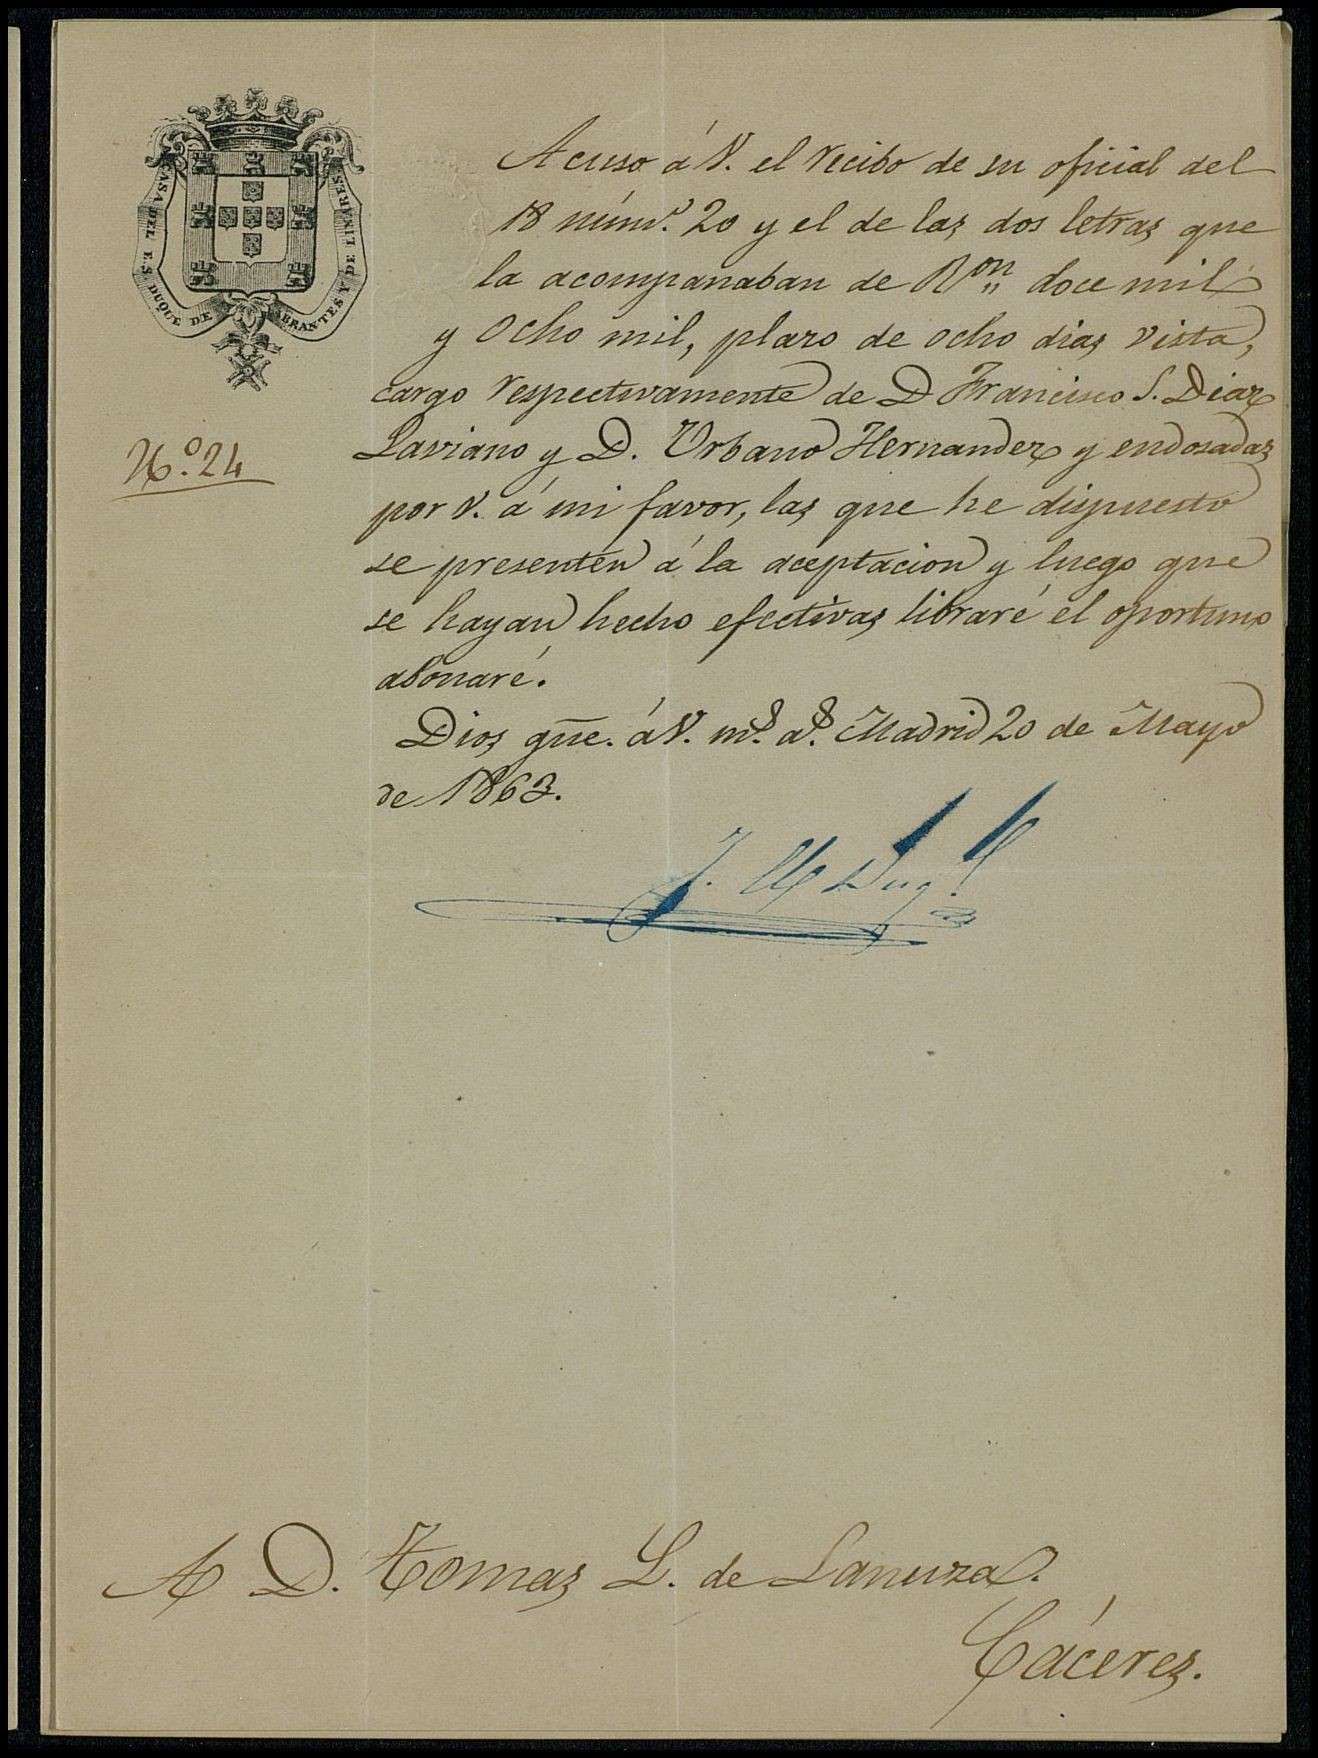 CASA DEL E.S. DUQUE DE ABRANTES Y DE LINARES
Nº. 24
Acuso á V. el recibo de su oficial del
18 númº. 20 y el de las dos letras que
la acompañaban de Rᵒⁿ doce mil
y ocho mil, plazo de ocho dias vista,
cargo respectivamente de D Francisco S. Diaz
Laviano y D. Urbano Hernandez y endosadas
por V. á mi favor, las que he dispuesto
se presenten á la aceptacion y luego que
se hayan hecho efectivas libraré el oportuno
abonaré.
Dios gue. á V. mˢ. aˢ. Madrid 20 de Mayo
de 1863.
A D. Tomas L. de Lanuza.
Cáceres.